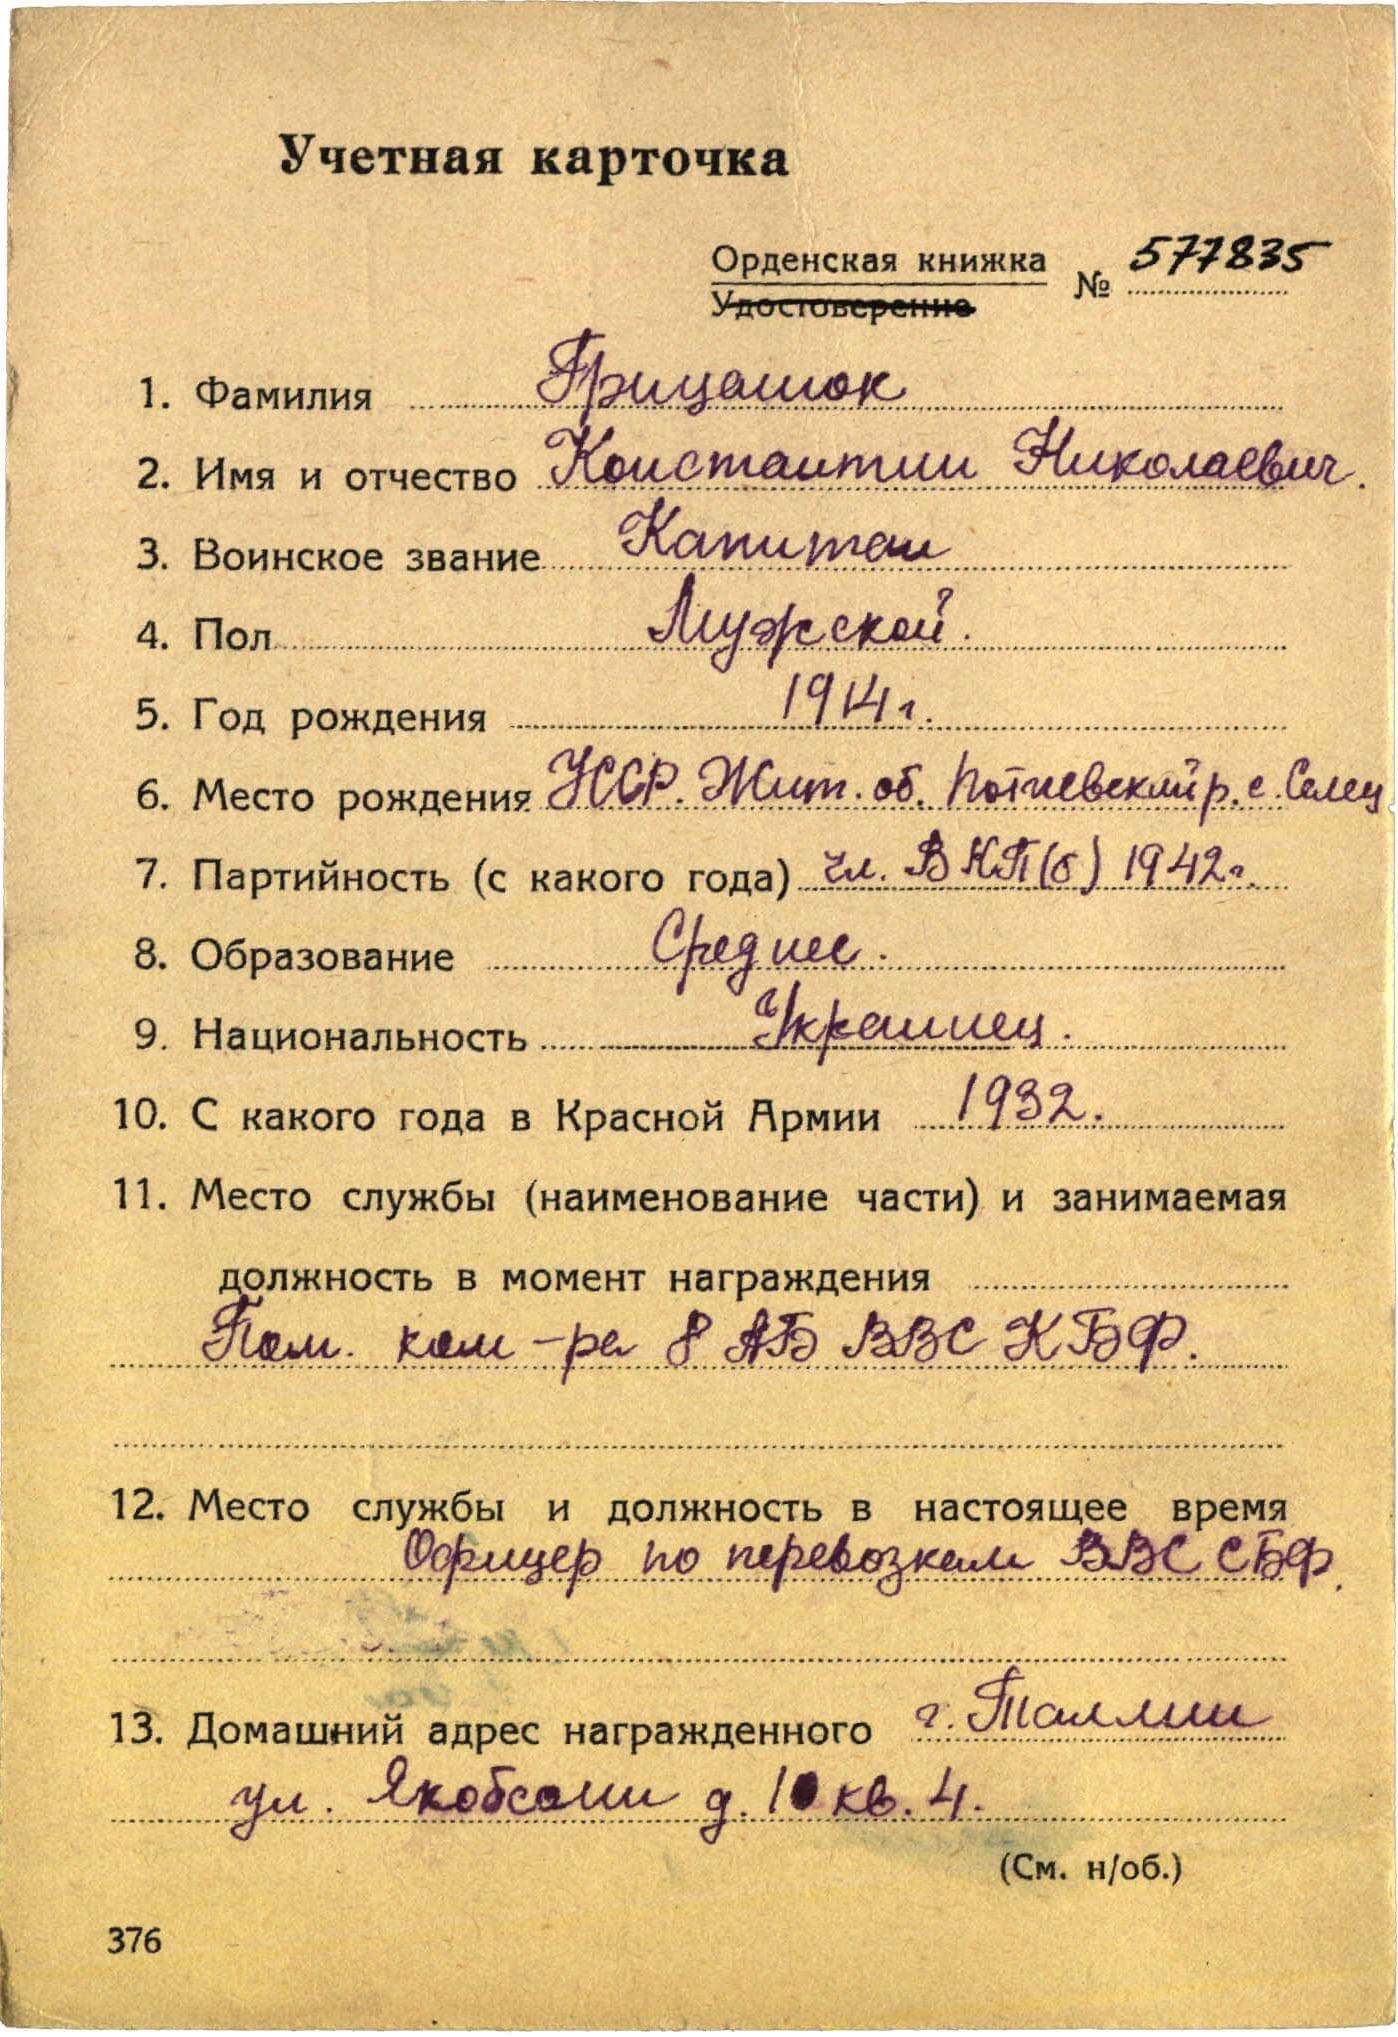 Учетная карточка
Орденская книжка
Удостоверение
№ 577835
1. Фамилия Грицанюк
2. Имя и отчество Константин Николаевич.
3. Воинское звание Капитан
4. Пол Мужской.
5. Год рождения 1914 г.
6. Место рождения УССР. Жит. об. Потиевский р. с. Селец
7. Партийность (с какого года) чл. ВКП(б) 1942 г.
8. Образование Среднее.
9. Национальность Украинец.
10. С какого года в Красной Армии 1932.
11. Место службы (наименование части) и занимаемая
должность в момент награждения
Пом. ком-ра 8 АБ ВВС КБФ.
12. Место службы и должность в настоящее время
Офицер по перевозкам ВВС СБФ.
13. Домашний адрес награжденного г. Таллин
ул. Якобсони д. 10 кв. 4.
(См. н/об.)
376